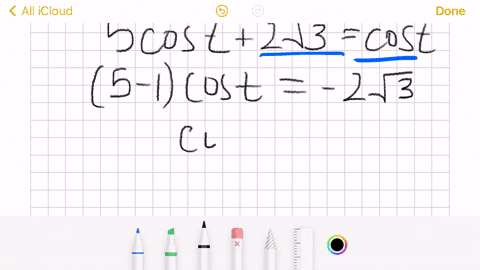 All iCloud
Done
5cost + 2√3 = cost
(5-1)cost = -2√3